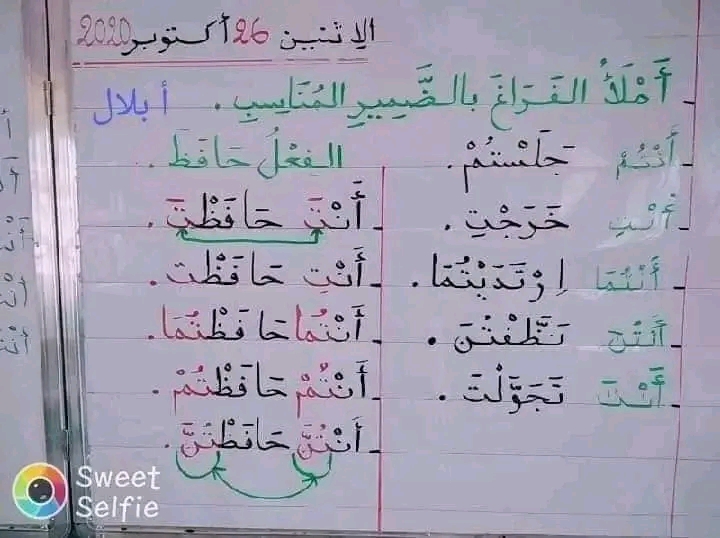 الإثنين 26 أكتوبر 2020
أَمْلَأُ الفَرَاغَ بالضَّمِيرِ المُنَاسِبِ . أبلال
- أَنْتُمْ جَلَسْتُمْ .
- أَنْتِ خَرَجْتِ .
- أَنْتُمَا اِرْتَدَيْتُمَا .
- أَنْتُنَّ نَظَّفْتُنَّ .
- أَنْتَ تَجَوَّلْتَ .
الفِعْلُ حَافَظَ .
- أَنْتَ حَافَظْتَ .
- أَنْتِ حَافَظْتِ .
- أَنْتُمَا حَافَظْتُمَا .
- أَنْتُمْ حَافَظْتُمْ .
- أَنْتُنَّ حَافَظْتُنَّ .
Sweet
Selfie